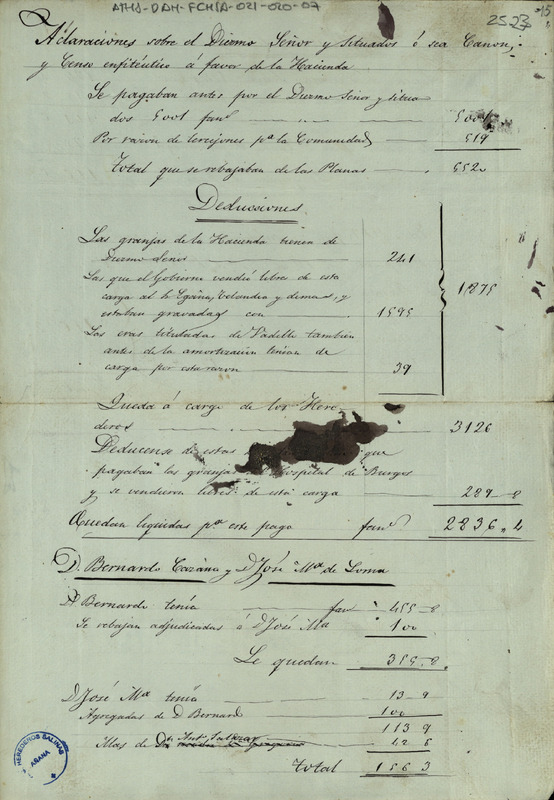 ATHA-DAH-FCHSA-021-020-07
2523
Aclaraciones sobre el Diezmo Señor y Situados ó sea Canon
y Censo enfitéutico a favor de la Hacienda
Se pagaban antes por el Diezmo Señor y situa
dos 5001 fan
Por razon de torrejones pª la Comunidad 519
Total que se rebajaban de las Planas 552
Deducciones
Las granjas de la Hacienda tienen de
Diezmo Señor 241
Las que el Gobierno vendió libres de esta
carga al Sr Egaña, Velandia y demas, y
estaban gravadas con 1595
1875
Las eras tituladas de Padilla tambien
antes de la amortizacion tenian de
carga por esta razon 39
Queda á cargo de los Here-
deros 3126
Deducense de estas que
pagaban las granjas Hospital de Burgos
y se vendieron libres de esta carga 289 8
Quedan liquidas pª este pago fan 2836 4
D. Bernardo y D José Mª de Loma
D. Bernardo tenia fan 455-8
Se rebajan adjudicadas á D José Mª 100
Le quedan 355-8
D José Mª tenia 13-9
Agregadas de D Bernard 100
113 9
Mas de Dn Ant. Salazar 42 6
Total 156 3
HEREDEROS SALINAS
AÑANA